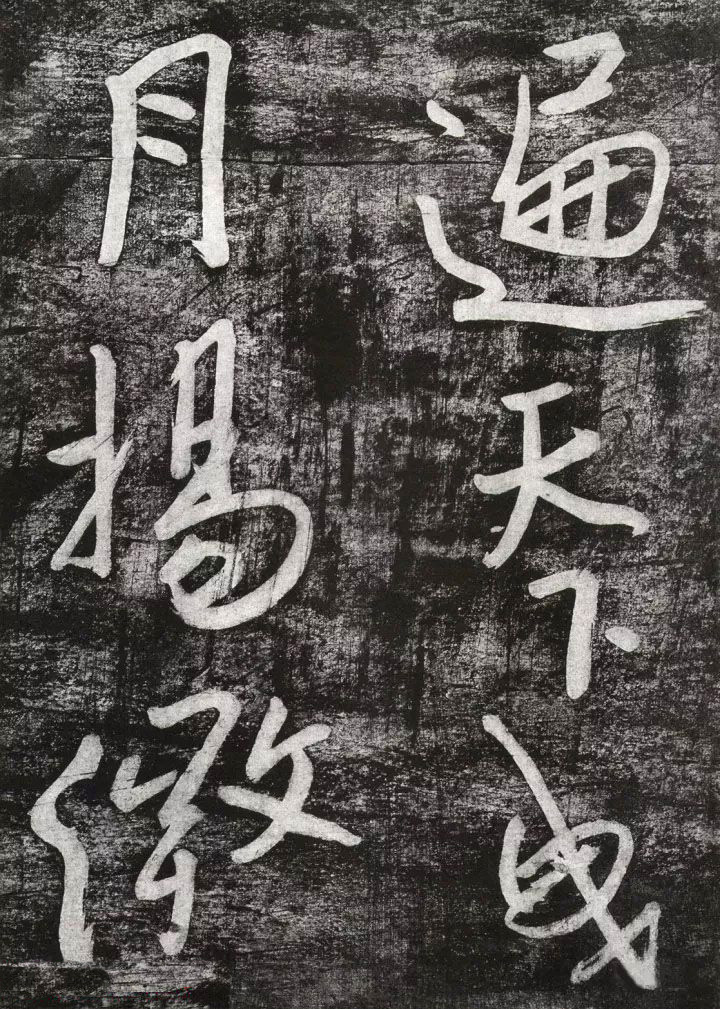 遍天下曳
月揚徽